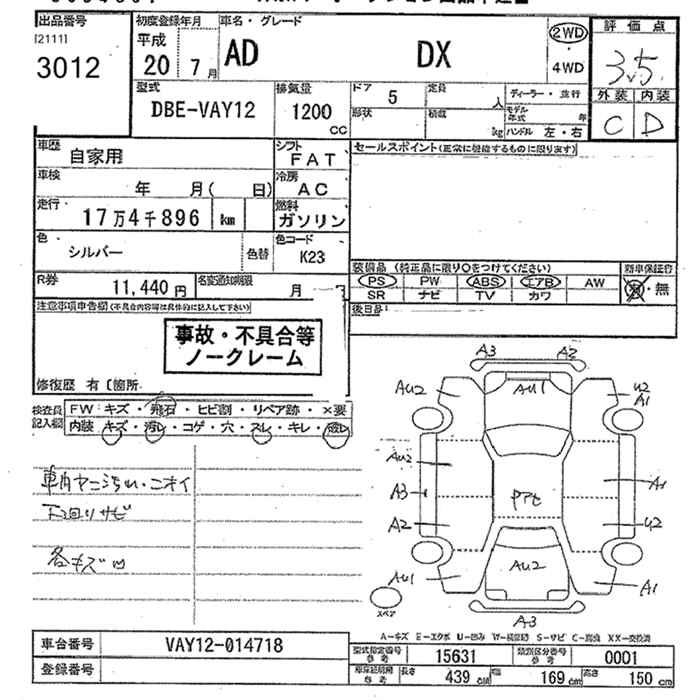 出品番号 初度登録年月 車名・グレード 評価点
[2111] 平成
3012 20 7月 AD DX 2WD・4WD 3.5
外装 内装
C D
型式 DBE-VAY12 排気量 1200 CC ドア 5 定員 人 ディーラー・並行
形状 積載 kg モデル年式 年
ハンドル 左・右
車歴 自家用 シフト FAT セールスポイント(正常に機能するものに限ります)
車検 年 月( 日) 冷房 AC
走行 17万4千896 km 燃料 ガソリン
色 シルバー 色替 色コード K23
装備品 (純正品に限り○をつけてください) 新車保証書
PS PW ABS エアB AW 有・無
SR ナビ TV カワ
R券 11,440円 名変通知期限 月
後日品:
注意事項申告欄(不具合内容等は具体的に記入して下さい)
事故・不具合等
ノークレーム
修復歴 有〔箇所
検査員記入欄 FW:キズ・飛石・ヒビ割・リペア跡・×要
内装:キズ・汚レ・コゲ・穴・スレ・キレ・破レ
車内ヤニ汚れ・ニオイ
下回りサビ
各キズ凹
A3 A2
AU2 AU1 U2
A1
AU2 A1
A3
A2 U2
AU1 AU2 A1
スペア
A3
A-キズ E-エクボ U-凹み W-補修跡 S-サビ C-腐食 XX-交換済
車台番号 VAY12-014718
型式指定番号 参考 15631 類別区分番号 参考 0001
登録番号
参考 長さ 439cm 幅 169cm 高さ 150cm